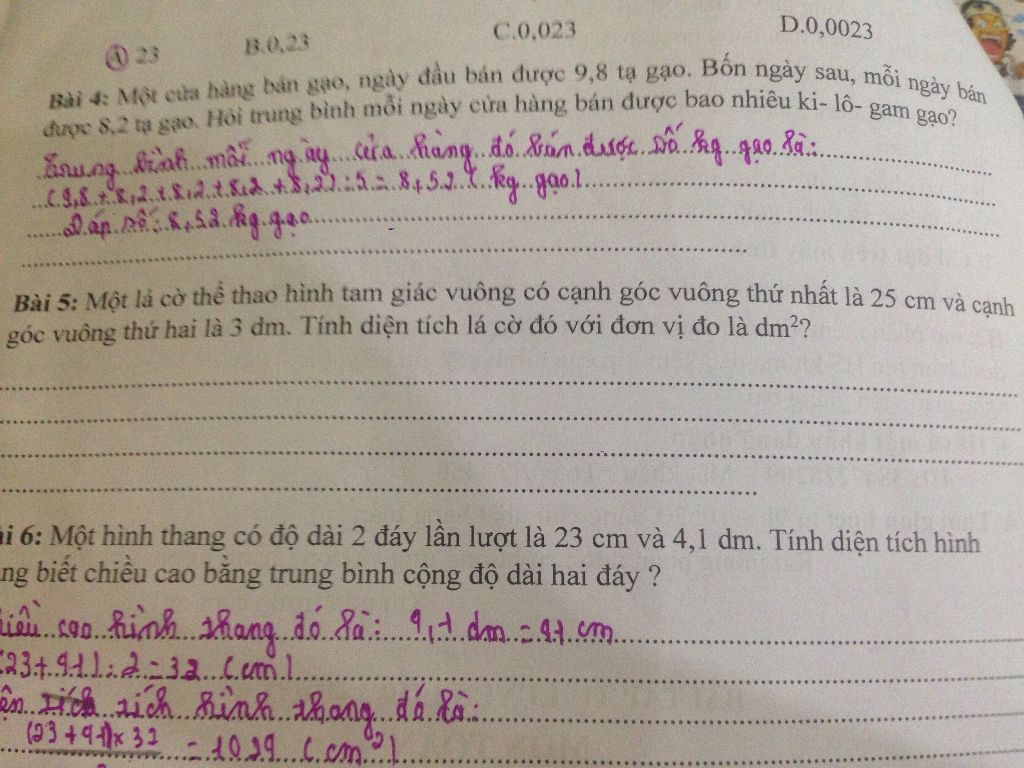 A 23 B.0,23 C.0,023 D.0,0023
Bài 4: Một cửa hàng bán gạo, ngày đầu bán được 9,8 tạ gạo. Bốn ngày sau, mỗi ngày bán
được 8,2 tạ gạo. Hỏi trung bình mỗi ngày cửa hàng bán được bao nhiêu ki- lô- gam gạo?
Trung bình mỗi ngày cửa hàng đó bán được số kg gạo là:
(9,8 + 8,2 + 8,2 + 8,2 + 8,2) : 5 = 8,52 (kg gạo)
Đáp số: 8,52 kg gạo
Bài 5: Một lá cờ thể thao hình tam giác vuông có cạnh góc vuông thứ nhất là 25 cm và cạnh
góc vuông thứ hai là 3 dm. Tính diện tích lá cờ đó với đơn vị đo là dm²?
ài 6: Một hình thang có độ dài 2 đáy lần lượt là 23 cm và 4,1 dm. Tính diện tích hình
ng biết chiều cao bằng trung bình cộng độ dài hai đáy ?
hiều cao hình thang đó là: 4,1 dm = 41 cm
(23 + 41) : 2 = 32 (cm)
ện tích hình thang đó là:
(23 + 41) x 32 = 1024 (cm²)